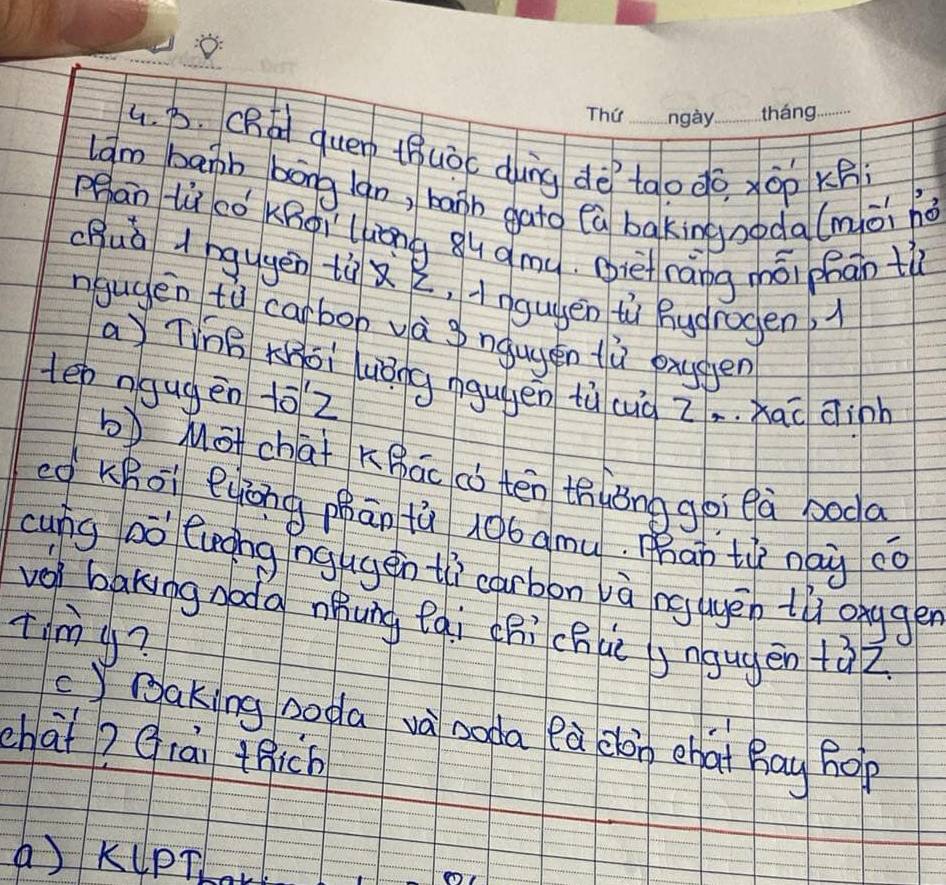 Thứ ........ ngày ........ tháng ........
4.3. Chất quen thuộc dùng để tạo độ xốp khi
làm bánh bông lan, bánh gato là baking soda (muối nở
phân tử có khối lượng 84 amu. Biết rằng mỗi phân tử
chứa 1 nguyên tử Z, 1 nguyên tử hydrogen, 1
nguyên tử carbon và 3 nguyên tử oxygen
a) Tính khối lượng nguyên tử của Z. Xác định
tên nguyên tố Z
b) Một chất khác có tên thường gọi là soda
có khối lượng phân tử 106 amu. Phân tử này có
cùng số lượng nguyên tử carbon và nguyên tử oxygen
với baking soda nhưng lại chỉ chức y nguyên tử Z.
Tìm y?
c) Baking soda và soda là đơn chất hay hợp
chất? Giải thích
a) KLPT